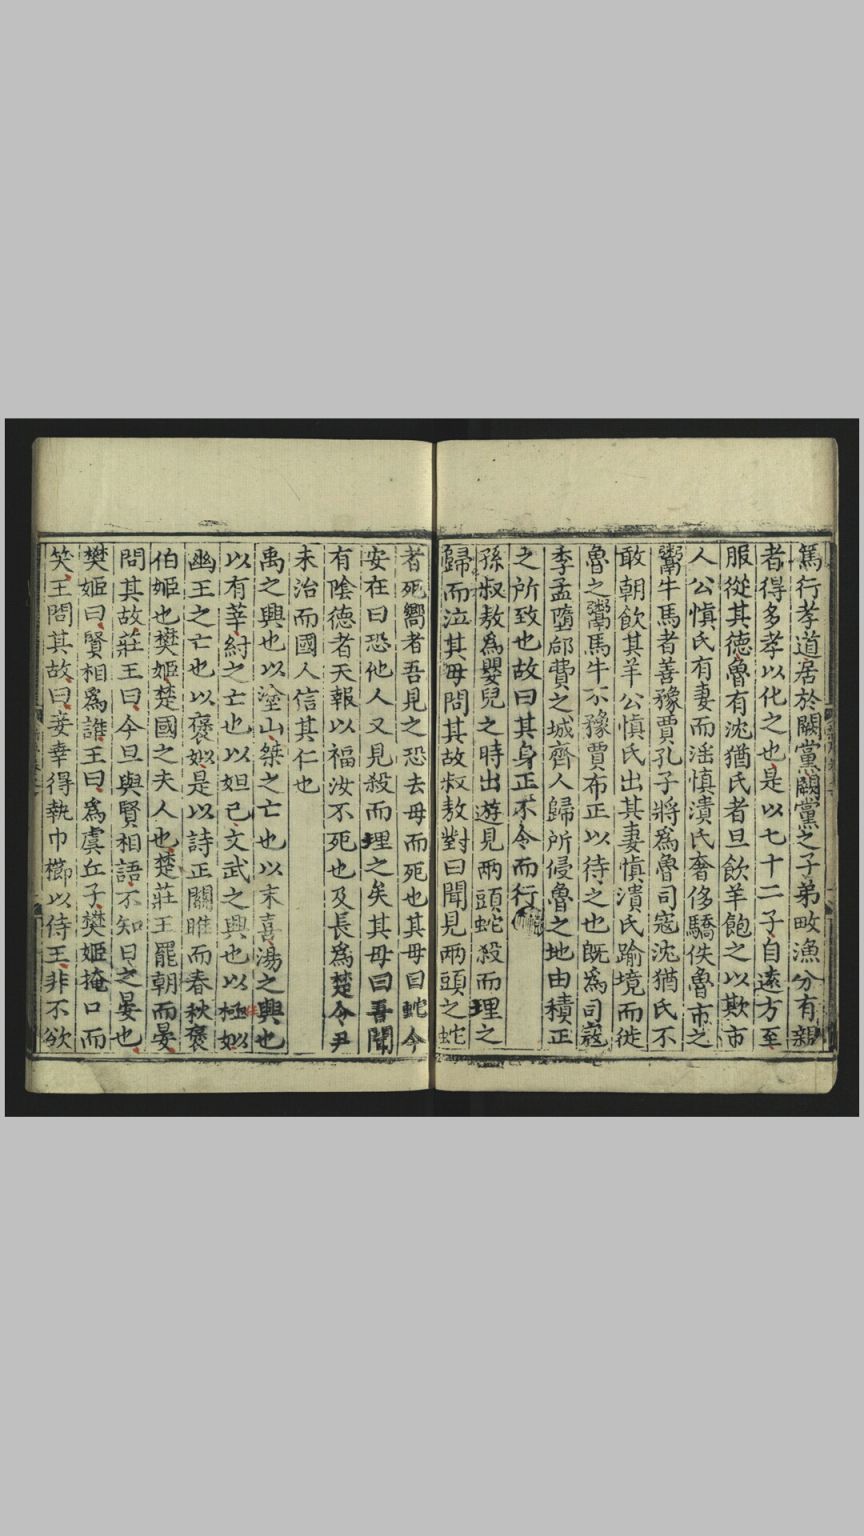 篤行孝道居於闕黨闕黨之子弟畋漁分有親
者得多孝以化之也是以七十二子自遠方至
服從其德魯有沈猶氏者旦飲羊飽之以欺市
人公愼氏有妻而淫愼潰氏奢侈驕佚魯市之
鬻牛馬者善豫賈孔子將爲魯司寇沈猶氏不
敢朝飲其羊公愼氏出其妻愼潰氏踰境而徙
魯之鬻馬牛不豫賈布正以待之也旣爲司寇
季孟墮郈費之城齊人歸所侵魯之地由積正
之所致也故曰其身正不令而行
孫叔敖爲嬰兒之時出遊見兩頭蛇殺而埋之
歸而泣其母問其故叔敖對曰聞見兩頭之蛇
者死嚮者吾見之恐去母而死也其母曰蛇今
安在曰恐他人又見殺而埋之矣其母曰吾聞
有陰德者天報以福汝不死也及長爲楚令尹
未治而國人信其仁也
禹之興也以塗山桀之亡也以末喜湯之興也
以有莘紂之亡也以妲己文武之興也以極姒
幽王之亡也以褒姒是以詩正關雎而春秋褒
伯姬也樊姬楚國之夫人也楚莊王罷朝而晏
問其故莊王曰今旦與賢相語不知日之晏也
樊姬曰賢相爲誰王曰爲虞丘子樊姬掩口而
笑王問其故曰妾幸得執巾櫛以侍王非不欲